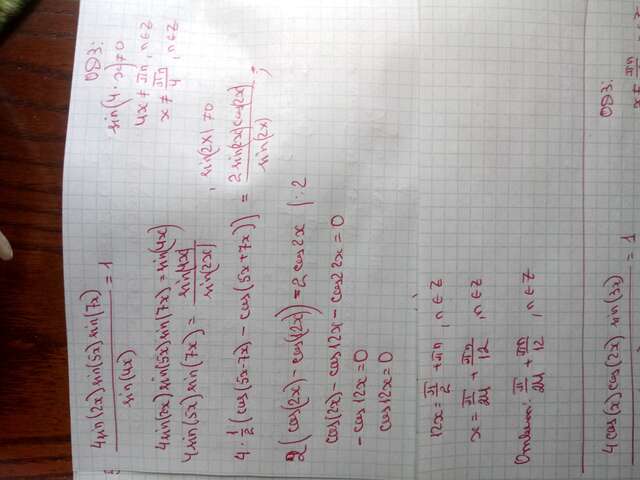 4sin(2x)sin(5x)sin(7x)/sin(4x) = 1
ОДЗ:
sin(4·x)≠0
4x ≠ πn, n∈Z
x ≠ πn/4, n∈Z
4sin(2x)sin(5x)sin(7x)=sin(4x)
4sin(5x)sin(7x) = sin(4x)/sin(2x), sin(2x) ≠0
4·1/2(cos(5x-7x) - cos(5x+7x)) = 2sin(2x)cos(2x)/sin(2x);
2(cos(2x)-cos(12x))=2cos2x |:2
cos(2x)-cos12x-cos2x=0
-cos12x=0
cos12x=0
12x=π/2+πn, n∈Z
x=π/24+πn/12, n∈Z
Ответ: π/24+πn/12, n∈Z
4cos(x)cos(2x)sin(3x) = 1
ОДЗ:
x ≠ πn